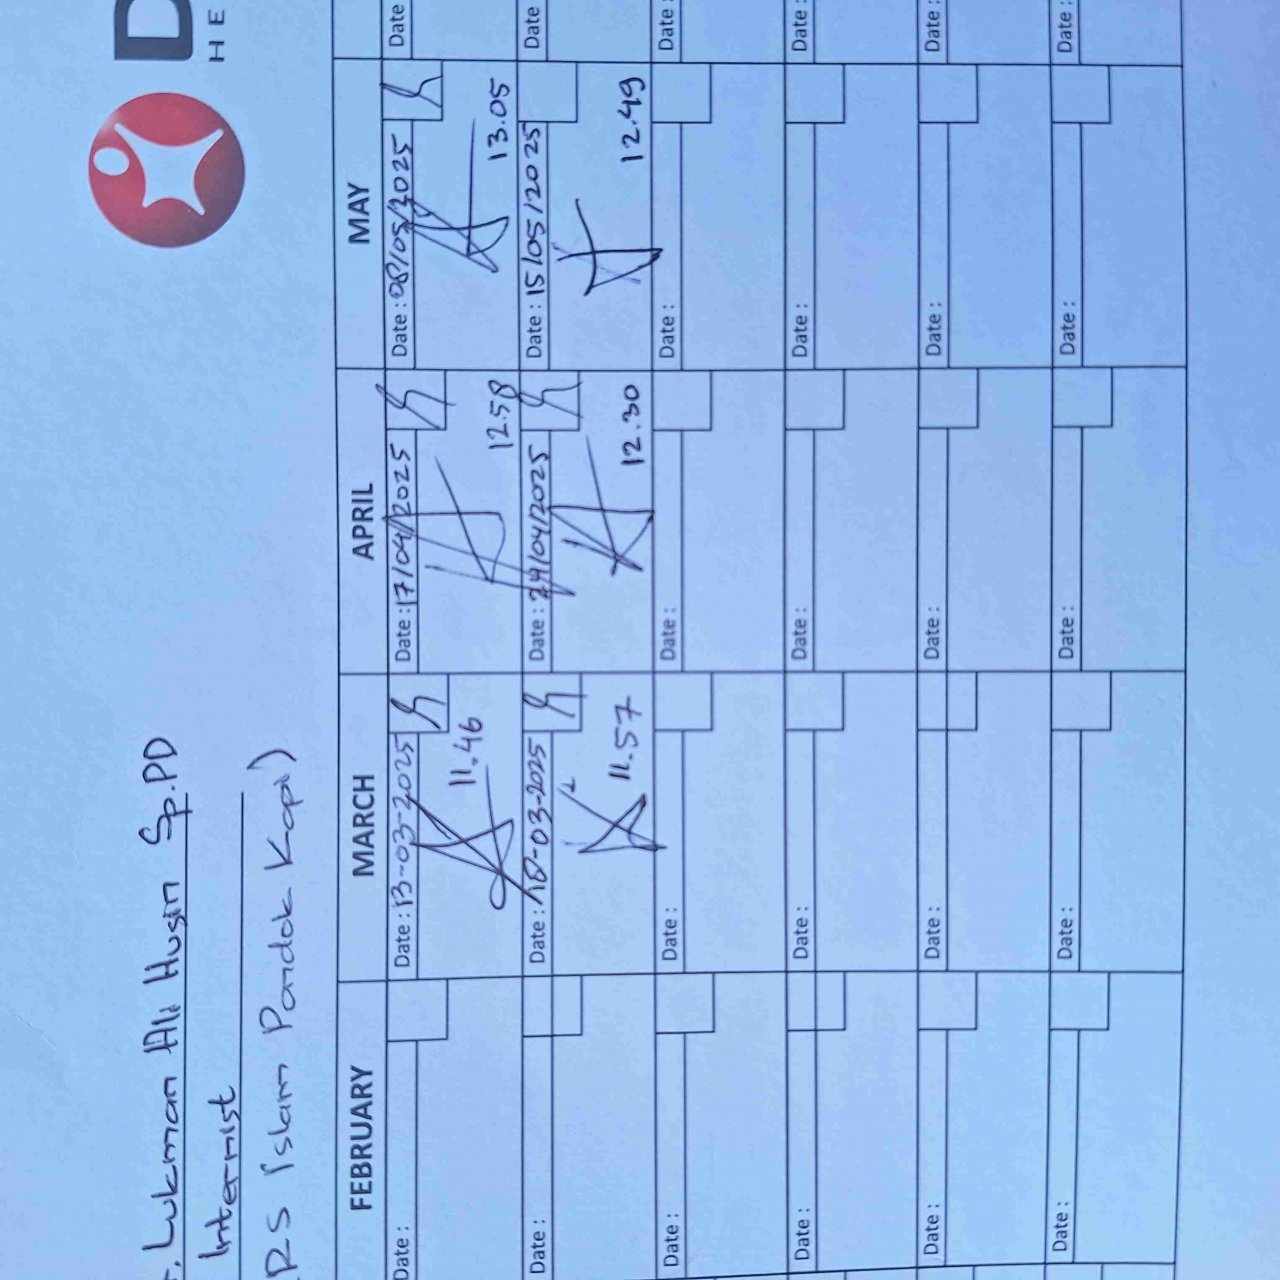 D
HE
. Lukman Ali Husin Sp.PD
Internist
RS Islam Pondok Kopi)
FEBRUARY MARCH APRIL MAY
Date : Date : 13-03-2025 Date : 17/04/2025 Date : 08/05/2025 Date
11.46 12.58 13.05
Date : Date : 18-03-2025 Date : 24/04/2025 Date : 15/05/2025 Date
11.57 12.30 12.49
Date : Date : Date : Date : Date :
Date : Date : Date : Date : Date :
Date : Date : Date : Date : Date :
Date : Date : Date : Date : Date :